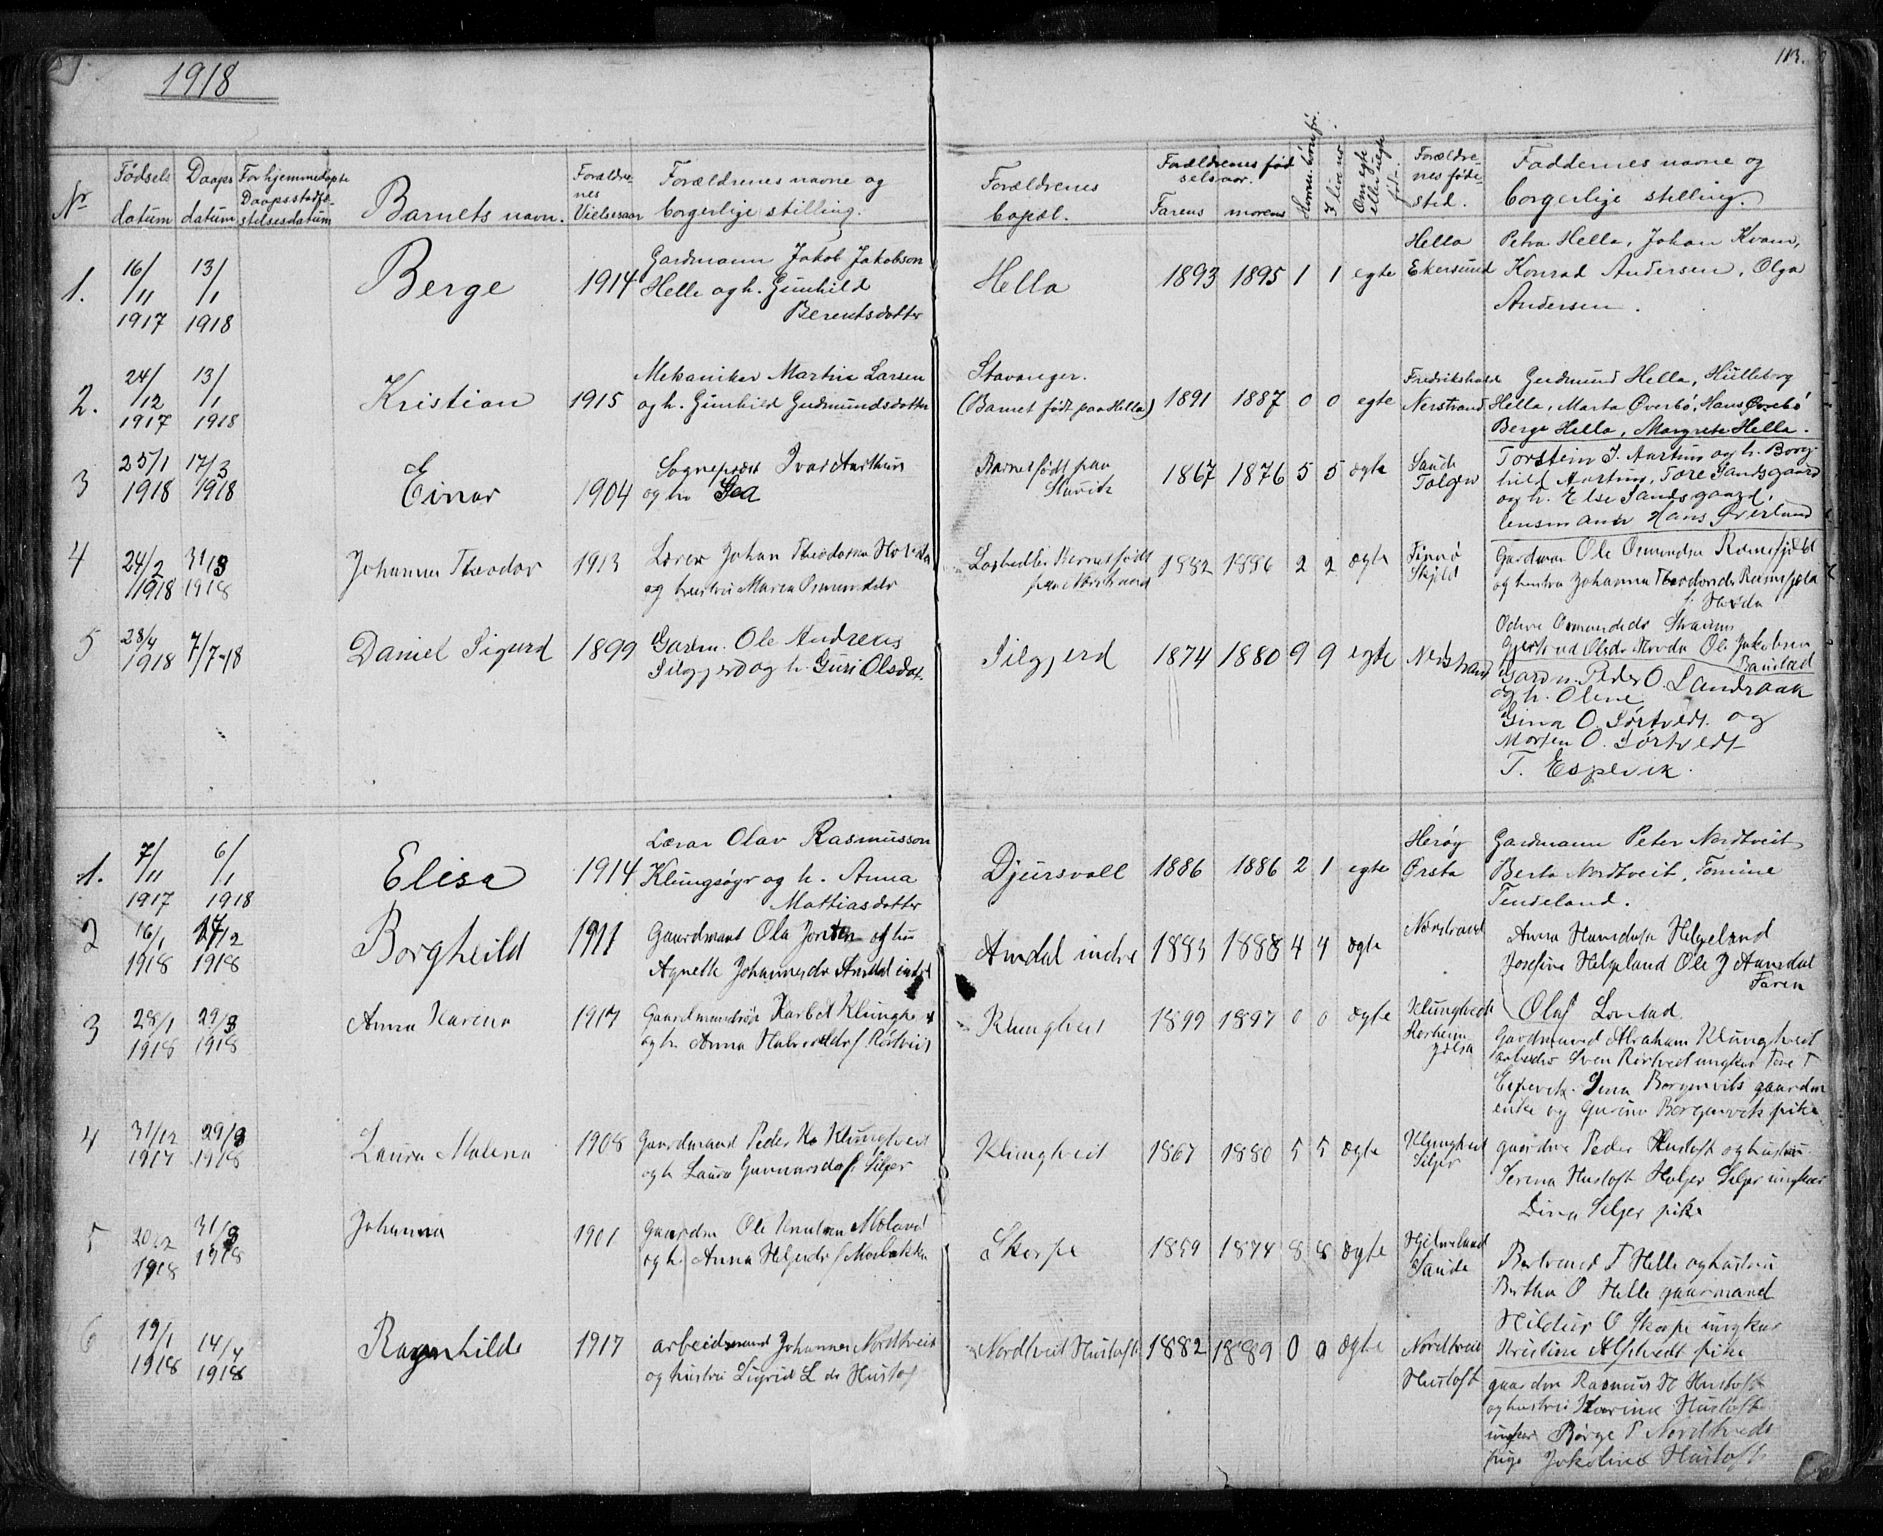 1918
113.
Nr
Fødsels datum
Daaps datum
For hjemmedøpte Daapsstadfæstelsesdatum
Barnets navn.
Forældrenes Vielsesaar
Forældrenes navne og borgerlige stilling.
Forældrenes bopæl.
Forældrenes fødselsaar.
Farens
morens
I live nu.
Om egte eller uegte fød.
Forældrenes fødested.
Faddernes navne og borgerlige stilling.
1. 16/11 1917 13/1 1918 Berge 1914
Gardmann Jakob Jakobson
Helle og h. Gunhild
Berentsdotter
Hella 1893 1895 1 1 egte
Hella
Ekersund
Petra Hella, Johan Kvam,
Konrad Andersen, Olga
Andersen.
2. 24/12 1917 13/1 1918 Kristian 1915
Mekaniker Martin Larsen
og h. Gunhild Gudmundsdotter
Stavanger.
(Barnet født paa Hella) 1891 1887 0 0 egte
Fredrikshald
Nerstrand
Gudmund Hella, Hülleborg
Hella, Marta Øverbö, Hans Øverbö
Berge Hella, Margrete Hella.
3 25/1 1918 17/3 1918 Einar 1904
Sogneprest Ivar Aarthun
og h. Gea
Barnet født paa
1867 1876 5 5 ægte
Saude
Tolgen
Torstein I. Aartun og h. Borg
hild Aartun, Tore Sandsgaard
og h. Else Sandsgaard,
lensmann Hans Øverland
4 24/2 1918 31/3 1918 Johannes Theodor 1913
Lærer Johan Theodorsen
og hustru Maren
1882 1886 2 2 ægte
Finnø
Skjold
Gardman Ole Osmundsen Ramsfjeld
og hustru Johanna Ramsfjeld
5 28/4 1918 7/7-18 Daniel Sigurd 1899
Gardm. Ole Andreas
Silgjerd og h. Guri Olsdat.
Silgjerd 1874 1880 9 9 egte Nerstrand
Gjertrud Olsdr Ole Jakobsen
Gardm. Peder O. Landraak
og h. Olene
Gina O. Sörtvedt. og
Morten O. Sörtvedt
T. Espevik.
1. 7/11 1917 6/1 1918 Elisa 1914
Lærar Olav Rasmusson
Klungsøyr og h. Anna
Mathiasdotter
Djursvoll 1886 1886 2 1 egte
Herøy
Ørsta
Gardmann Peter Nordtveit
Berta Nordtveit, Tomine
Tendeland.
2 16/1 1918 17/2 1918 Borgheild 1911
Gaardmand Ola Jonsen og hu
Agnethe Johannesdr Amdal indre
Amdal indre 1883 1888 4 4 ægte Nerstrand
Anna Hansdatr Helgeland
Josefine Helgeland Ole J Aamdal
Faren
3 28/1 1918 29/3 1918 Anna Karena 1917
Klungtveit 1899 1897 0 0 ægte
Klungtvedt
Jelsa
Olaf Lonstad
Gardmand Abraham Klungtveit
arbeider Sven Rørtvedt ungkar Tore T
Espevik. Lina Borgenvik gaardm
enke og Gurine Borgenvik pike
4 31/12 1917 29/3 1918 Laura Malena 1908
Gaardmand Peder K. Klungtveit
og h. Laura Gunnarsdr f. Silger
Klungtveit 1867 1880 5 5 ægte
Klungtveit
Silger
gaardm Peder Hustoft og hustru
Serena Hustoft Holger Silger ungkar
Dina Silger pike
5 20/2 1918 31/3 1918 Johanna 1901
Gaardm Ole Knutsen Moland
og h. Anna Helgesdr f Morbekken
Skorpe 1859 1874 8 8 ægte
Hjelmeland
Saude
Bertrand T Helle og hustru
Bertha O Helle gaarmand
Hildur O Skorpe ungkar
Kristine Alstvedt pike
6 19/1 1918 14/4 1918 Ragnhilde 1917
arbeidsmand Johannes Nordtveit
og hustru Sigrid L dr Hustoft
Nordtveit Hustoft 1882 1889 0 0 ægte
Nordtveit
Hustoft
gaardm Rasmus H Hustoft
og hustru Karina Hustoft
ungkar Børge P Nordtvedt
pige Jakoline Hustoft